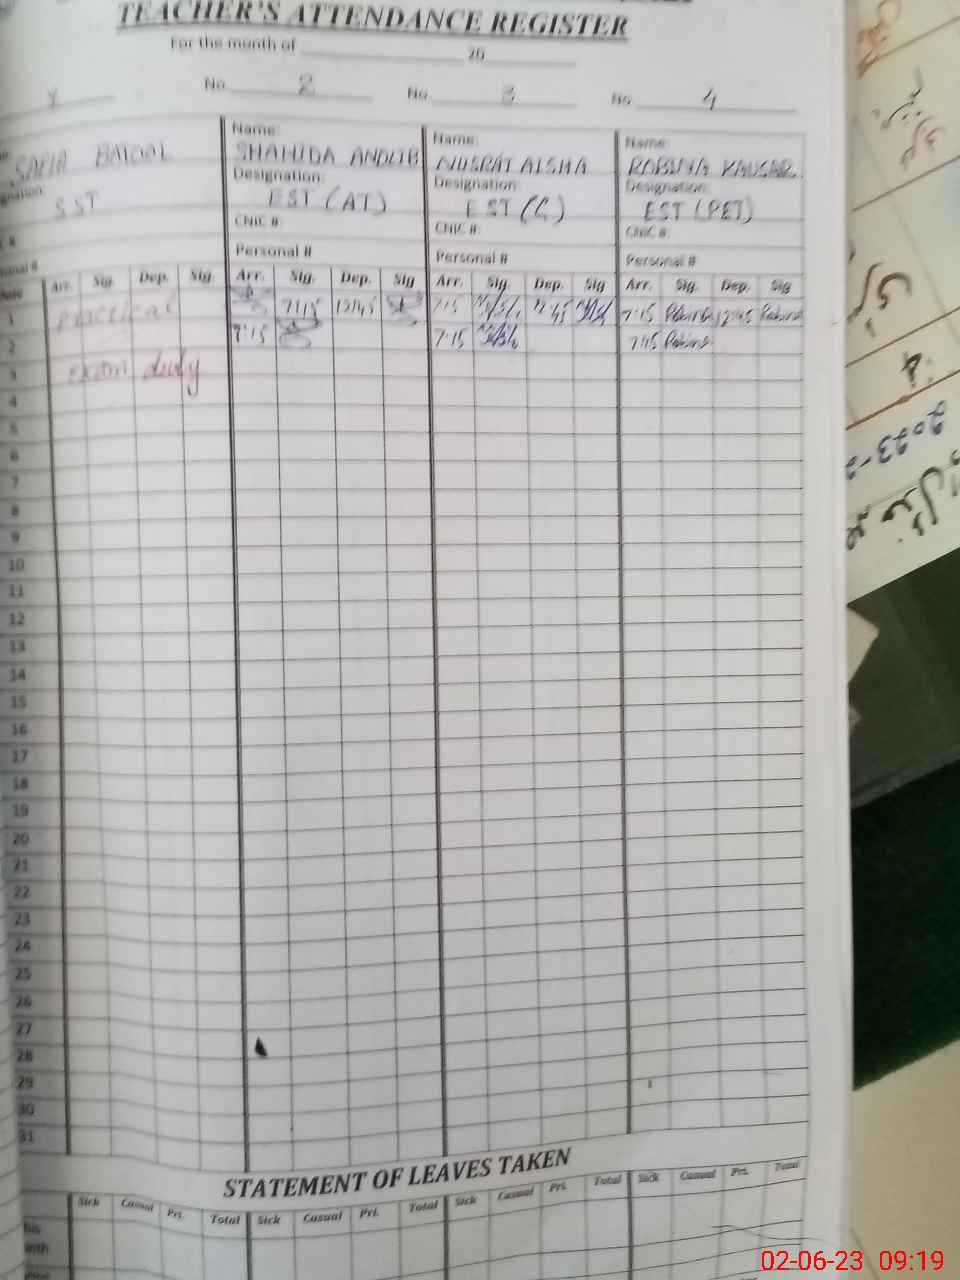 TEACHER'S ATTENDANCE REGISTER
For the month of 20
No. 2 No. 3 No. 4
Name: Name: Name:
SAFIA BATOOL SHAHIDA ANDLIB NUSRAT AISHA RABINA KAUSAR
Designation: Designation: Designation:
SST EST (AT) EST (C) EST (PET)
CNIC #: CNIC #: CNIC #:
Personal # Personal # Personal #
Arr. Sig. Dep. Sig. Arr. Sig. Dep. Sig Arr. Sig. Dep. Sig Arr. Sig. Dep. Sig
1 practical 7:15 12:45 7:15 12:45 7:15 Rabina 12:45 Rabina
2 7:15 7:15 7:15 Rabina
3 exam duty
4
5
6
7
8
9
10
11
12
13
14
15
16
17
18
19
20
21
22
23
24
25
26
27
28
29
30
31
STATEMENT OF LEAVES TAKEN
Sick Casual Pri. Total Sick Casual Pri. Total Sick Casual Pri. Total Sick Casual Pri. Total
02-06-23 09:19